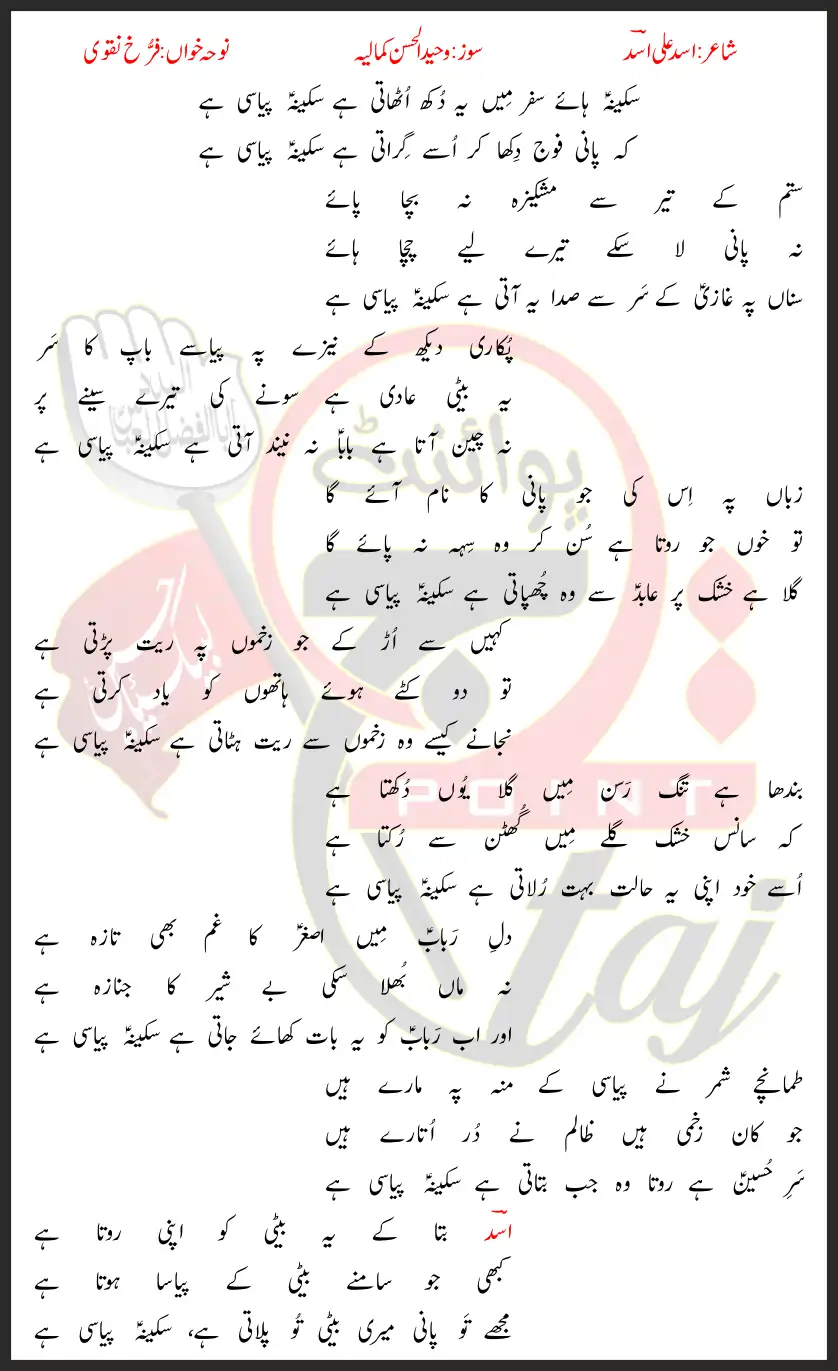 شاعر: اسد علی اسدؔ سوز: وحیدالحسن کمالیہ نوحہ خواں: فرّخ نقوی
سکینہؑ ہائے سفر مِیں یہ دُکھ اُٹھاتی ہے سکینہؑ پیاسی ہے
کہ پانی فوج دِکھا کر اُسے گِراتی ہے سکینہؑ پیاسی ہے
ستم کے تیر سے مشکیزہ نہ بچا پائے
نہ پانی لا سکے تیرے لیے چچا ہائے
سناں پہ غازیؑ کے سَر سے صدا یہ آتی ہے سکینہؑ پیاسی ہے
پُکاری دیکھ کے نیزے پہ پیاسے باپ کا سَر
یہ بیٹی عادی ہے سونے کی تیرے سینے پر
نہ چین آتا ہے باباؑ نہ نیند آتی ہے سکینہؑ پیاسی ہے
زباں پہ اِس کی جو پانی کا نام آئے گا
تو خوں جو روتا ہے سُن کر وہ سِہہ نہ پائے گا
گلا ہے خشک پر عابدؑ سے وہ چُھپاتی ہے سکینہؑ پیاسی ہے
کہیں سے اُڑ کے جو زخموں پہ ریت پڑتی ہے
تو دو کٹے ہوئے ہاتھوں کو یاد کرتی ہے
نجانے کیسے وہ زخموں سے ریت ہٹاتی ہے سکینہؑ پیاسی ہے
بندھا ہے تنگ رَسن مِیں گلا یُوں دُکھتا ہے
کہ سانس خشک گلے مِیں گُھٹن سے رُکتا ہے
اُسے خود اپنی یہ حالت بہت رُلاتی ہے سکینہؑ پیاسی ہے
دلِ رَبابؑ مِیں اصغرؑ کا غم بھی تازہ ہے
نہ ماں بُھلا سکی بے شیر کا جنازہ ہے
اور اب رَبابؑ کو یہ بات کھائے جاتی ہے سکینہؑ پیاسی ہے
طمانچے شمر نے پیاسی کے منہ پہ مارے ہیں
جو کان زخمی ہیں ظالم نے دُر اُتارے ہیں
سَرِ حُسینؑ ہے روتا وہ جب بتاتی ہے سکینہؑ پیاسی ہے
اسدؔ بتا کے یہ بیٹی کو اپنی روتا ہے
کبھی جو سامنے بیٹی کے پیاسا ہوتا ہے
مجھے تَو پانی میری بیٹی تُو پلاتی ہے، سکینہؑ پیاسی ہے
پوائنٹ
تاج
POINT
taj
لبیک یا حسینؑ
السلام علیک یا اباالفضل العباسؑ